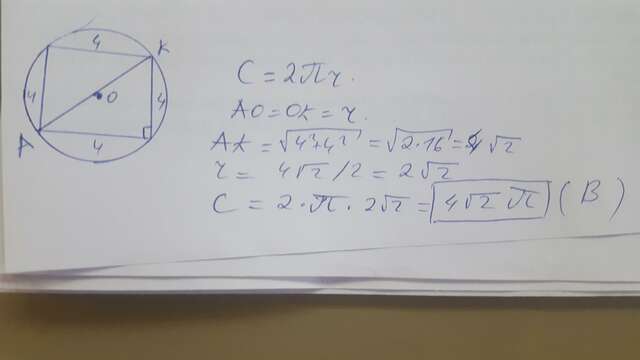 4
K
4
4
O
A
4
C = 2πr.
AO = OK = r.
AK = √4²+4² = √2·16 = 4√2
r = 4√2/2 = 2√2
C = 2·π·2√2 = 4√2 π (B)